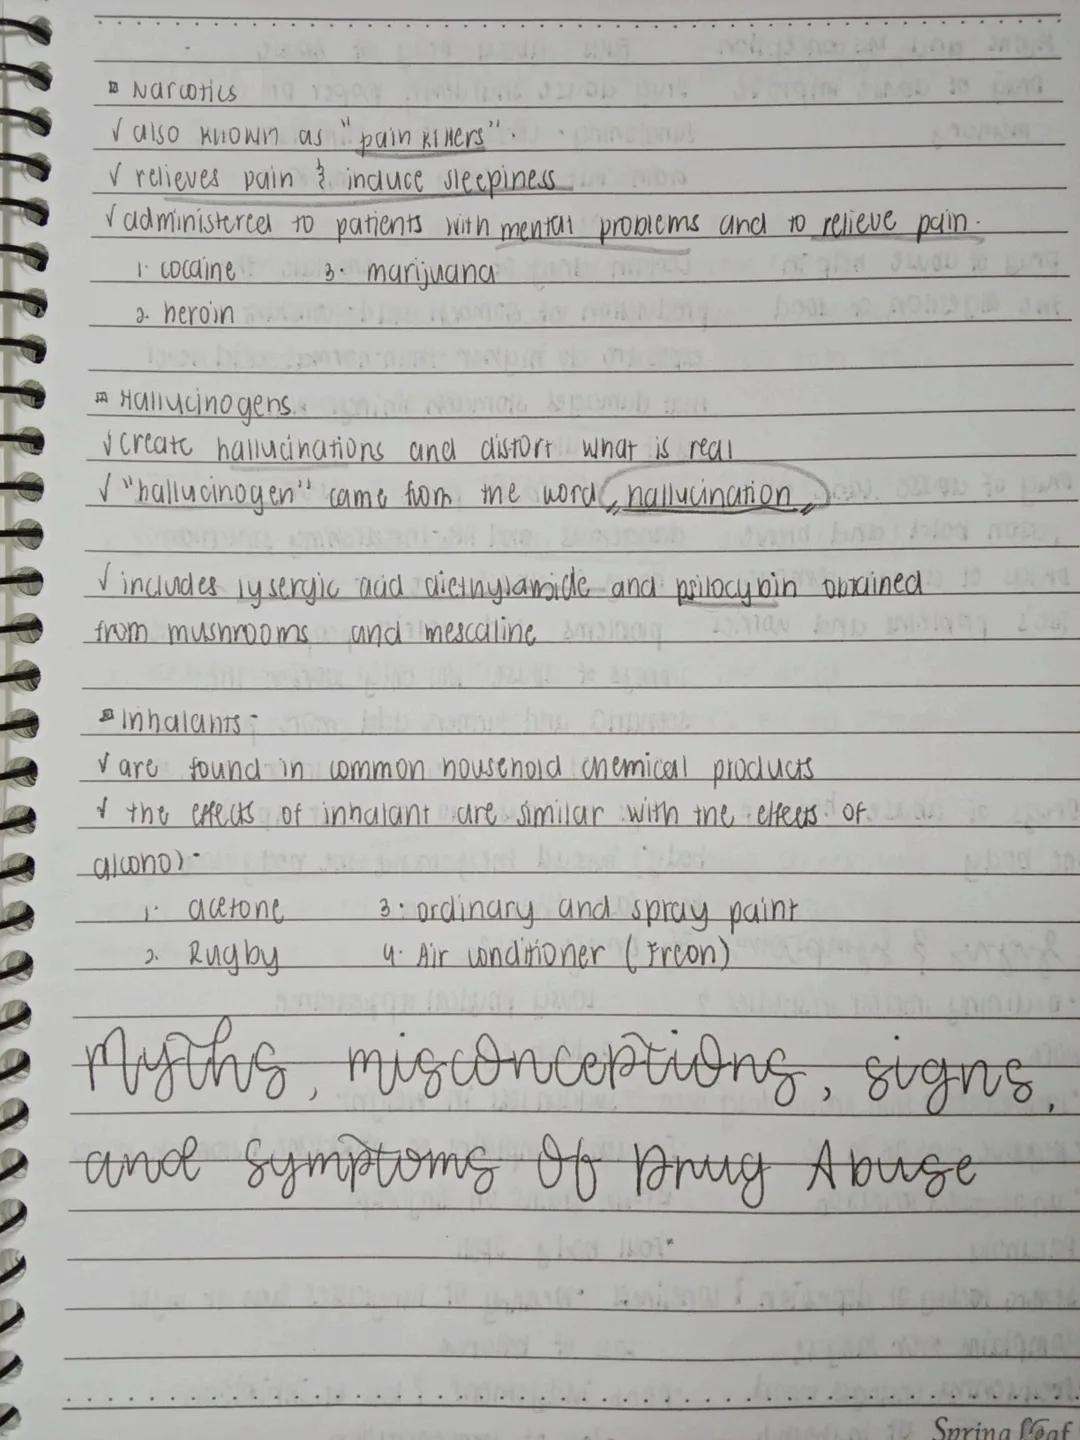 Narcotics
√ also known as "pain killers".
√ relieves pain & induce sleepiness
√ administered to patients with mental problems and to relieve pain.
1. cocaine 3. marijuana
2. heroin
Hallucinogens.
√ create hallucinations and distort what is real
√ "hallucinogen" came from the word "hallucination"
√ includes lysergic acid diethylamide and psilocybin obtained
from mushrooms and mescaline
Inhalants -
√ are found in common household chemical products
√ the effects of inhalant are similar with the effects of
alcohol -
1. acetone 3. ordinary and spray paint
2. Rugby 4. Air conditioner (Freon)
Myths, misconceptions, signs,
and symptoms Of Drug Abuse
Spring Leaf